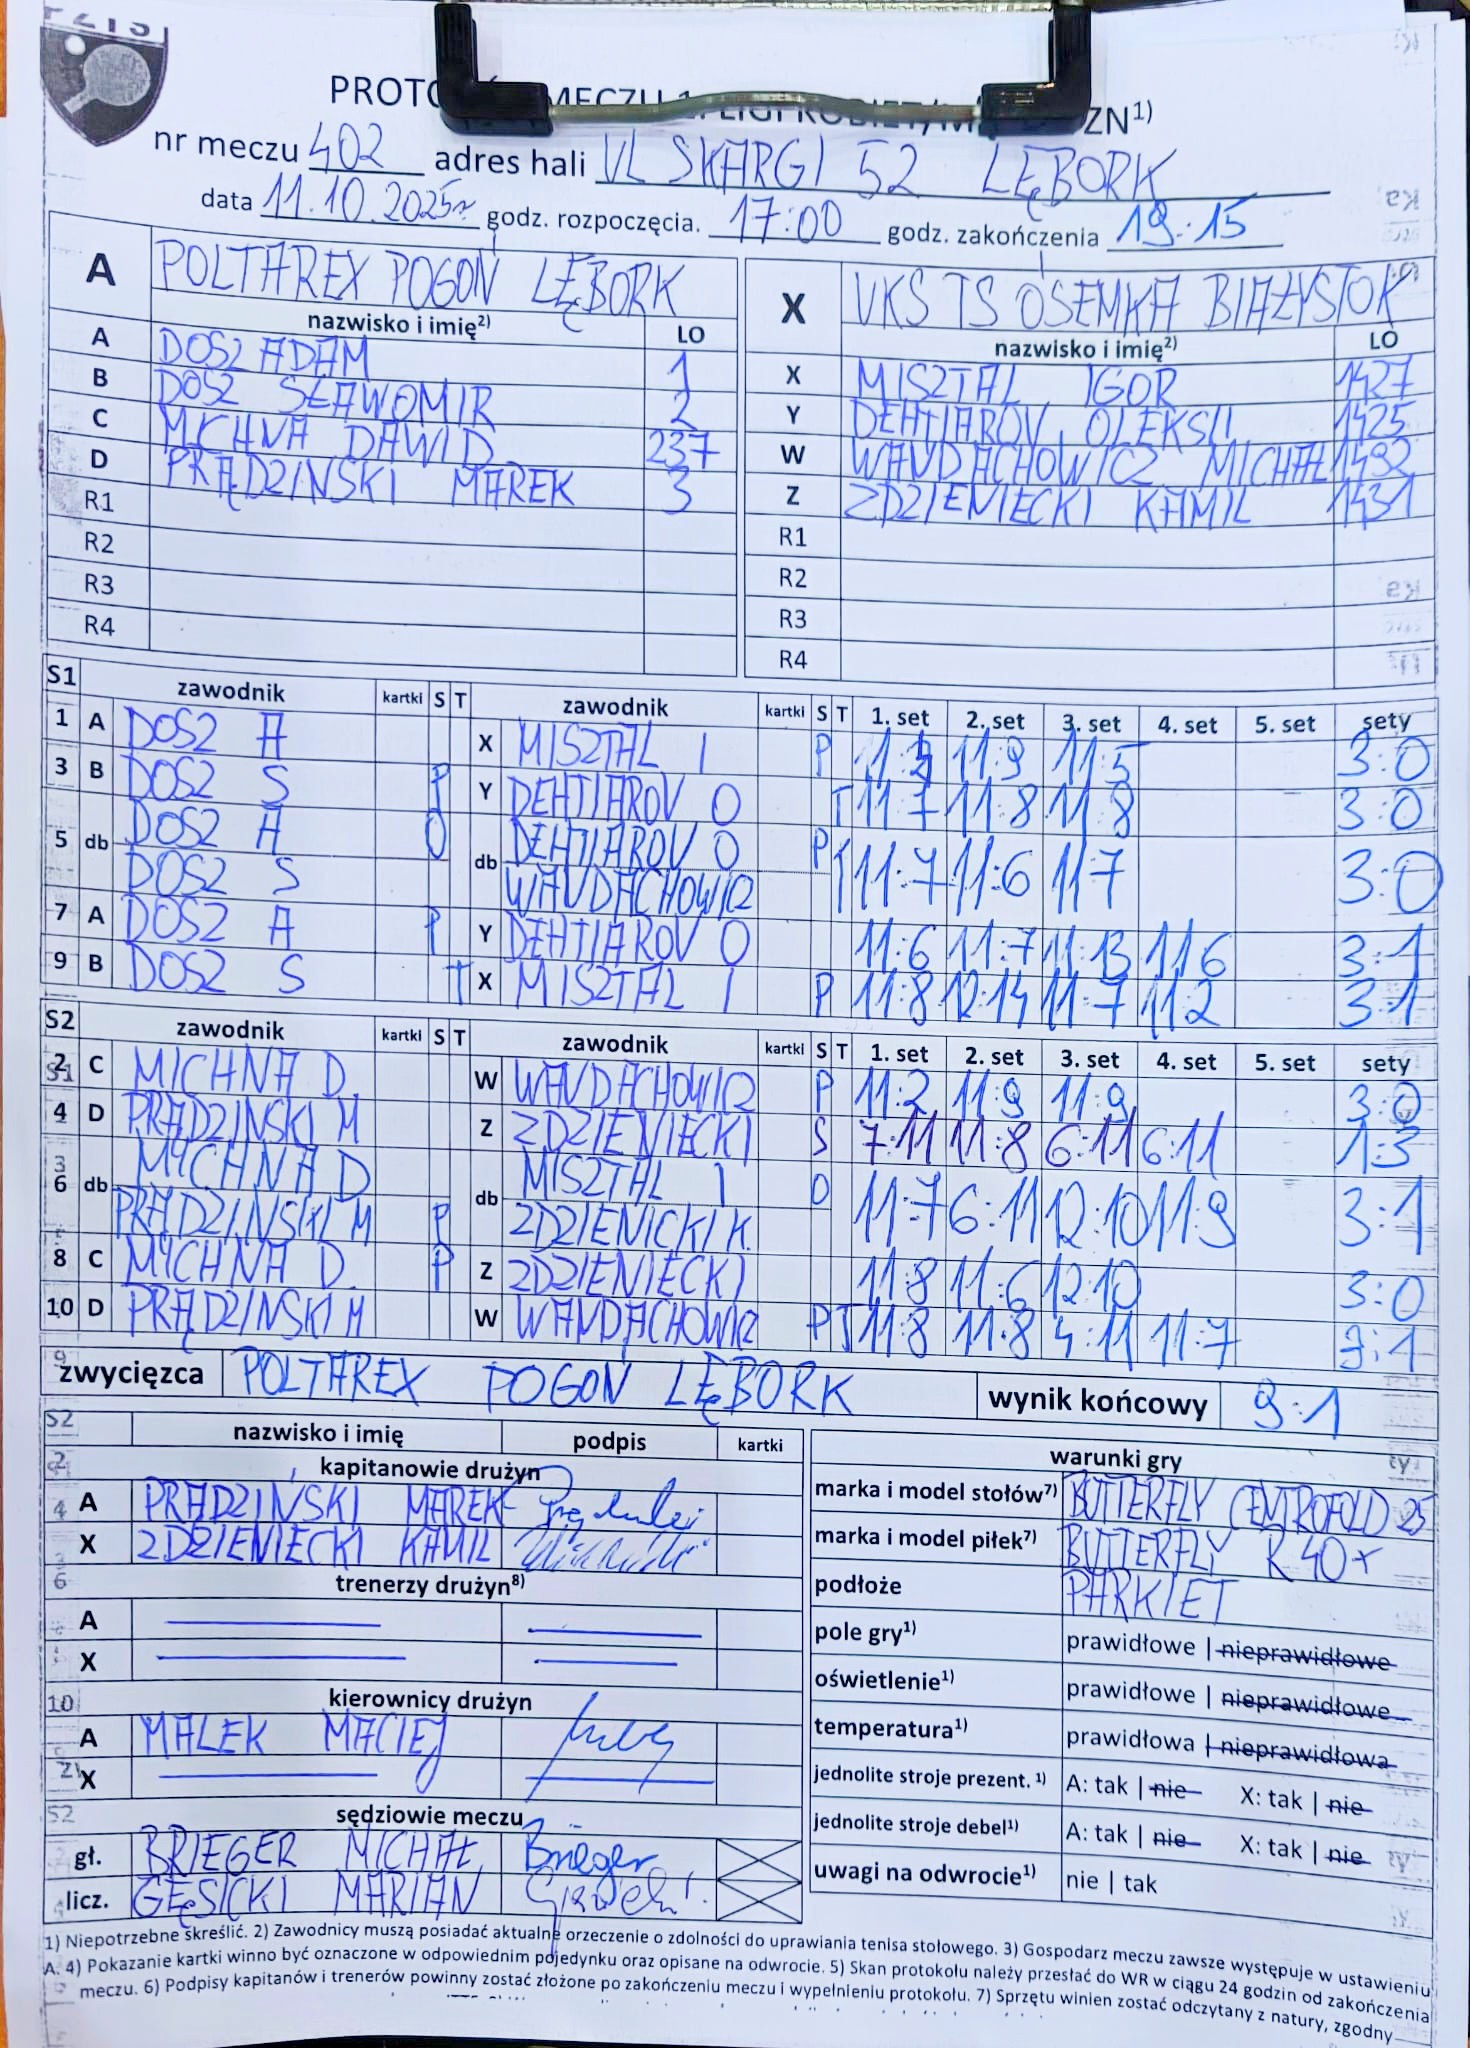 PZTS
PROTO MECZU 1. LIGI KOBIET/M ZN1)
nr meczu 402 adres hali UL SKARGI 52 LĘBORK
data 11.10.2025r godz. rozpoczęcia. 17:00 godz. zakończenia 19:15
A POLTAREX POGOŃ LĘBORK
nazwisko i imię2) LO
A DOSZ ADAM 1
B DOSZ SŁAWOMIR 2
C MICHNA DAWID 237
D PRĄDZIŃSKI MAREK 3
R1
R2
R3
R4
X UKS TS ÓSEMKA BIAŁYSTOK
nazwisko i imię2) LO
X MISZTAL IGOR 1427
Y DEHTIAROV OLEKSII 1425
W WAUDACHOWICZ MICHAŁ 1492
Z ZDZIENIECKI KAMIL 1431
R1
R2
R3
R4
S1 zawodnik kartki S T zawodnik kartki S T 1. set 2. set 3. set 4. set 5. set sety
1 A DOSZ A X MISZTAL I P 11:3 11:9 11:5 3:0
3 B DOSZ S P Y DEHTIAROV O T 11:7 11:8 11:8 3:0
5 db DOSZ A O db DEHTIAROV O P T 11:7 11:6 11:7 3:0
DOSZ S WAUDACHOWICZ
7 A DOSZ A P Y DEHTIAROV O 11:6 11:7 11:13 11:6 3:1
9 B DOSZ S T X MISZTAL I P 11:8 12:14 11:7 11:2 3:1
S2 zawodnik kartki S T zawodnik kartki S T 1. set 2. set 3. set 4. set 5. set sety
2 C MICHNA D. W WAUDACHOWICZ P 11:2 11:9 11:9 3:0
4 D PRĄDZIŃSKI M Z ZDZIENIECKI S 7:11 11:8 6:11 6:11 1:3
6 db MICHNA D db MISZTAL I O 11:7 6:11 12:10 11:9 3:1
PRĄDZIŃSKI M P ZDZIENICKI K.
8 C MICHNA D. P Z ZDZIENIECKI 11:8 11:6 12:10 3:0
10 D PRĄDZIŃSKI M W WAUDACHOWICZ P T 11:8 11:8 4:11 11:7 3:1
zwycięzca POLTAREX POGOŃ LĘBORK wynik końcowy 9:1
nazwisko i imię podpis kartki
kapitanowie drużyn
A PRĄDZIŃSKI MAREK
X ZDZIENIECKI KAMIL
trenerzy drużyn8)
A
X
kierownicy drużyn
A MALEK MACIEJ
X
sędziowie meczu
gł. BRIEGER MICHAŁ Brieger
licz. GĘSICKI MARIAN
warunki gry
marka i model stołów7) BUTTERFLY CENTREFOLD 25
marka i model piłek7) BUTTERFLY R 40+
podłoże PARKIET
pole gry1) prawidłowe | nieprawidłowe
oświetlenie1) prawidłowe | nieprawidłowe
temperatura1) prawidłowa | nieprawidłowa
jednolite stroje prezent. 1) A: tak | nie X: tak | nie
jednolite stroje debel1) A: tak | nie X: tak | nie
uwagi na odwrocie1) nie | tak
1) Niepotrzebne skreślić. 2) Zawodnicy muszą posiadać aktualne orzeczenie o zdolności do uprawiania tenisa stołowego. 3) Gospodarz meczu zawsze występuje w ustawieniu
A. 4) Pokazanie kartki winno być oznaczone w odpowiednim pojedynku oraz opisane na odwrocie. 5) Skan protokołu należy przesłać do WR w ciągu 24 godzin od zakończenia
meczu. 6) Podpisy kapitanów i trenerów powinny zostać złożone po zakończeniu meczu i wypełnieniu protokołu. 7) Sprzętu winien zostać odczytany z natury, zgodny